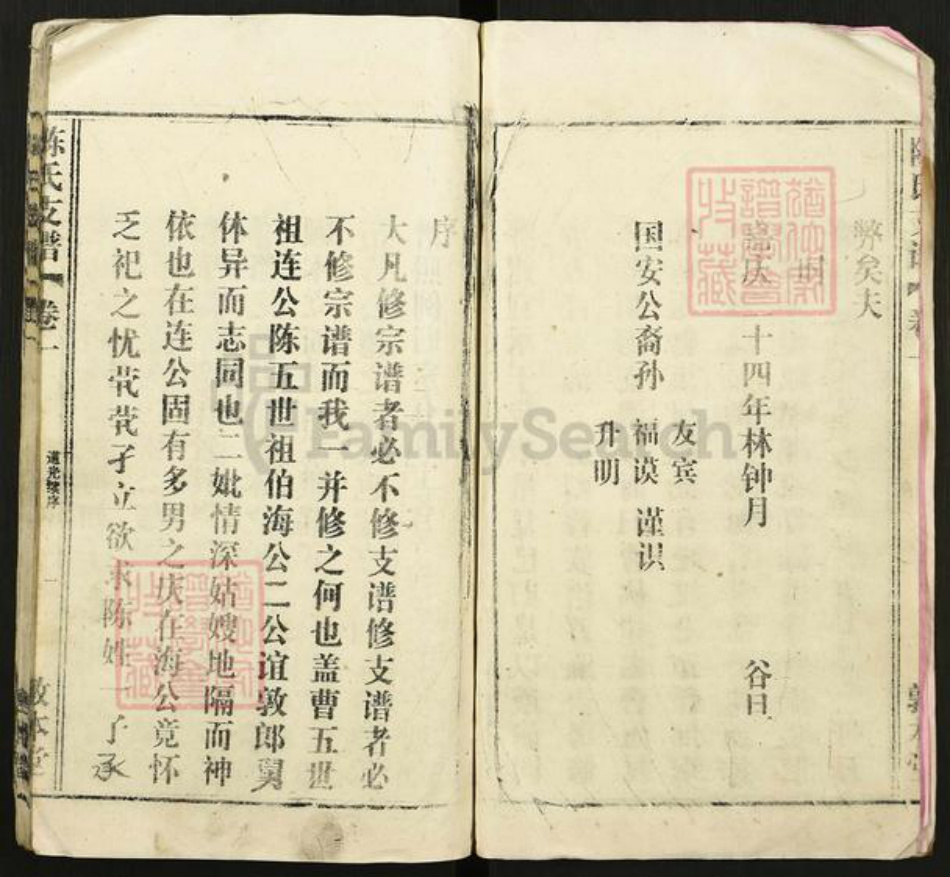 弊矣夫
庆
十四年林钟月
谷旦
国安公裔孙
友宾
福谟 谨识
升明
序
大凡修宗谱者必不修支谱修支谱者必
不修宗谱而我一并修之何也盖曹五世
祖连公陈五世祖伯海公二公谊敦郎舅
体异而志同也二妣情深姑嫂地隔而神
依也在连公固有多男之庆在海公竟怀
乏祀之忧茕茕孑立欲求陈姓一子承
陈氏支谱
卷一
道光续序
一
敦本堂
FamilySearch